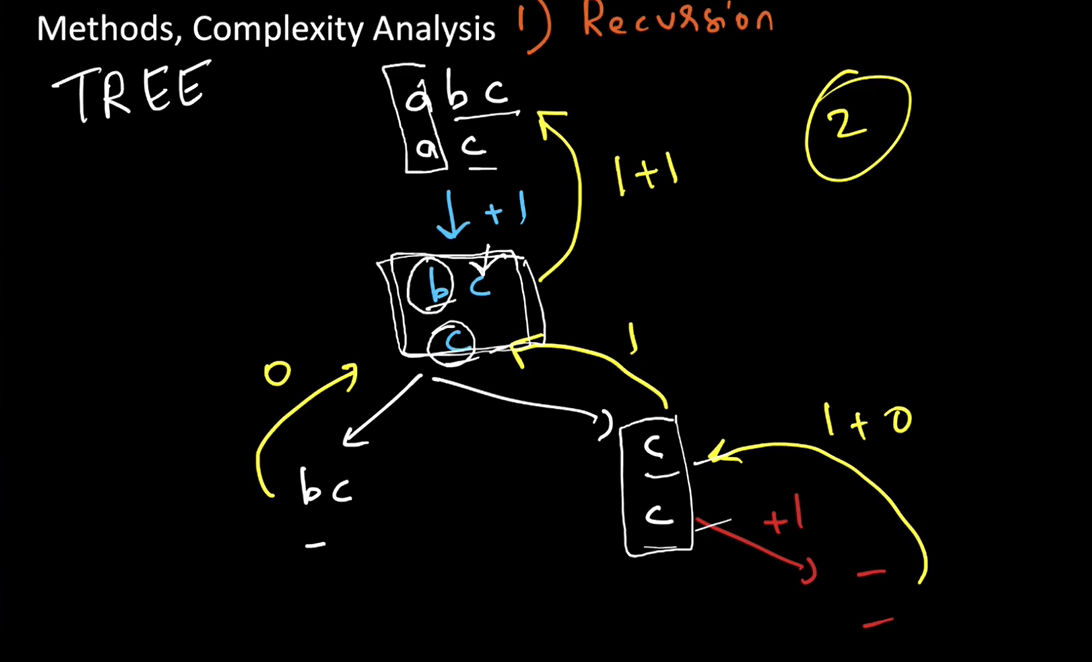 Methods, Complexity Analysis 1) Recursion
TREE
a b c
a c
2
1+1
+1
b c
c
0
1
b c
-
c
c
1+0
+1
-
-